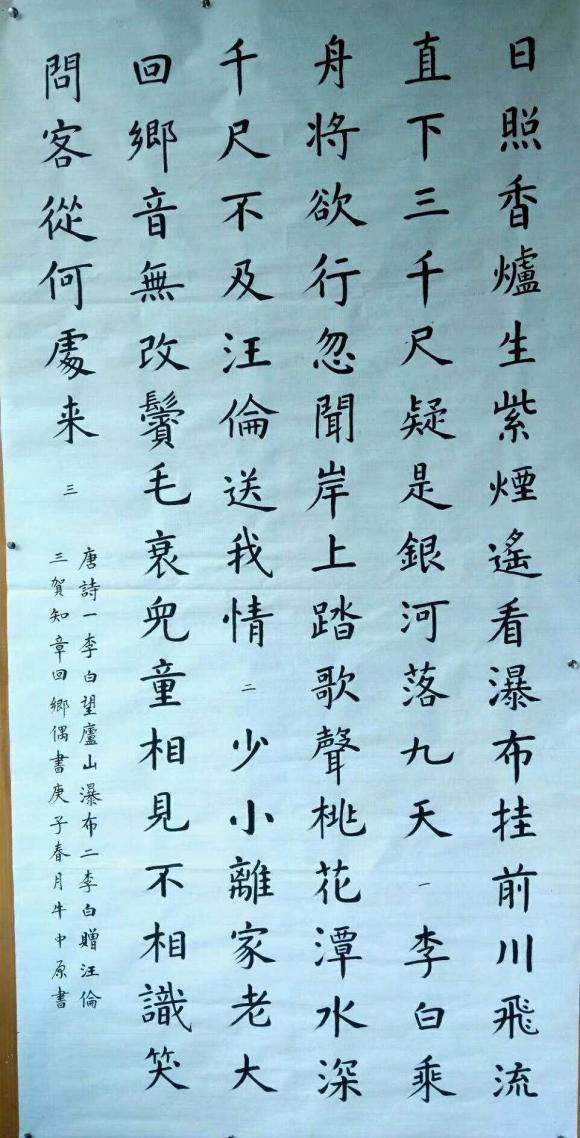 日照香爐生紫煙遙看瀑布挂前川飛流
直下三千尺疑是銀河落九天一李白乘
舟将欲行忽聞岸上踏歌聲桃花潭水深
千尺不及汪倫送我情二少小離家老大
回鄉音無改鬢毛衰兒童相見不相識笑
問客從何處来三
唐詩一李白望廬山瀑布二李白贈汪倫
三賀知章回鄉偶書庚子春月牛中原書